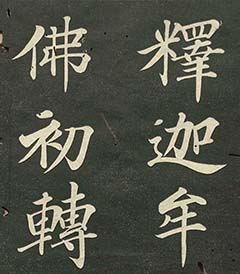 釋迦牟
佛初轉